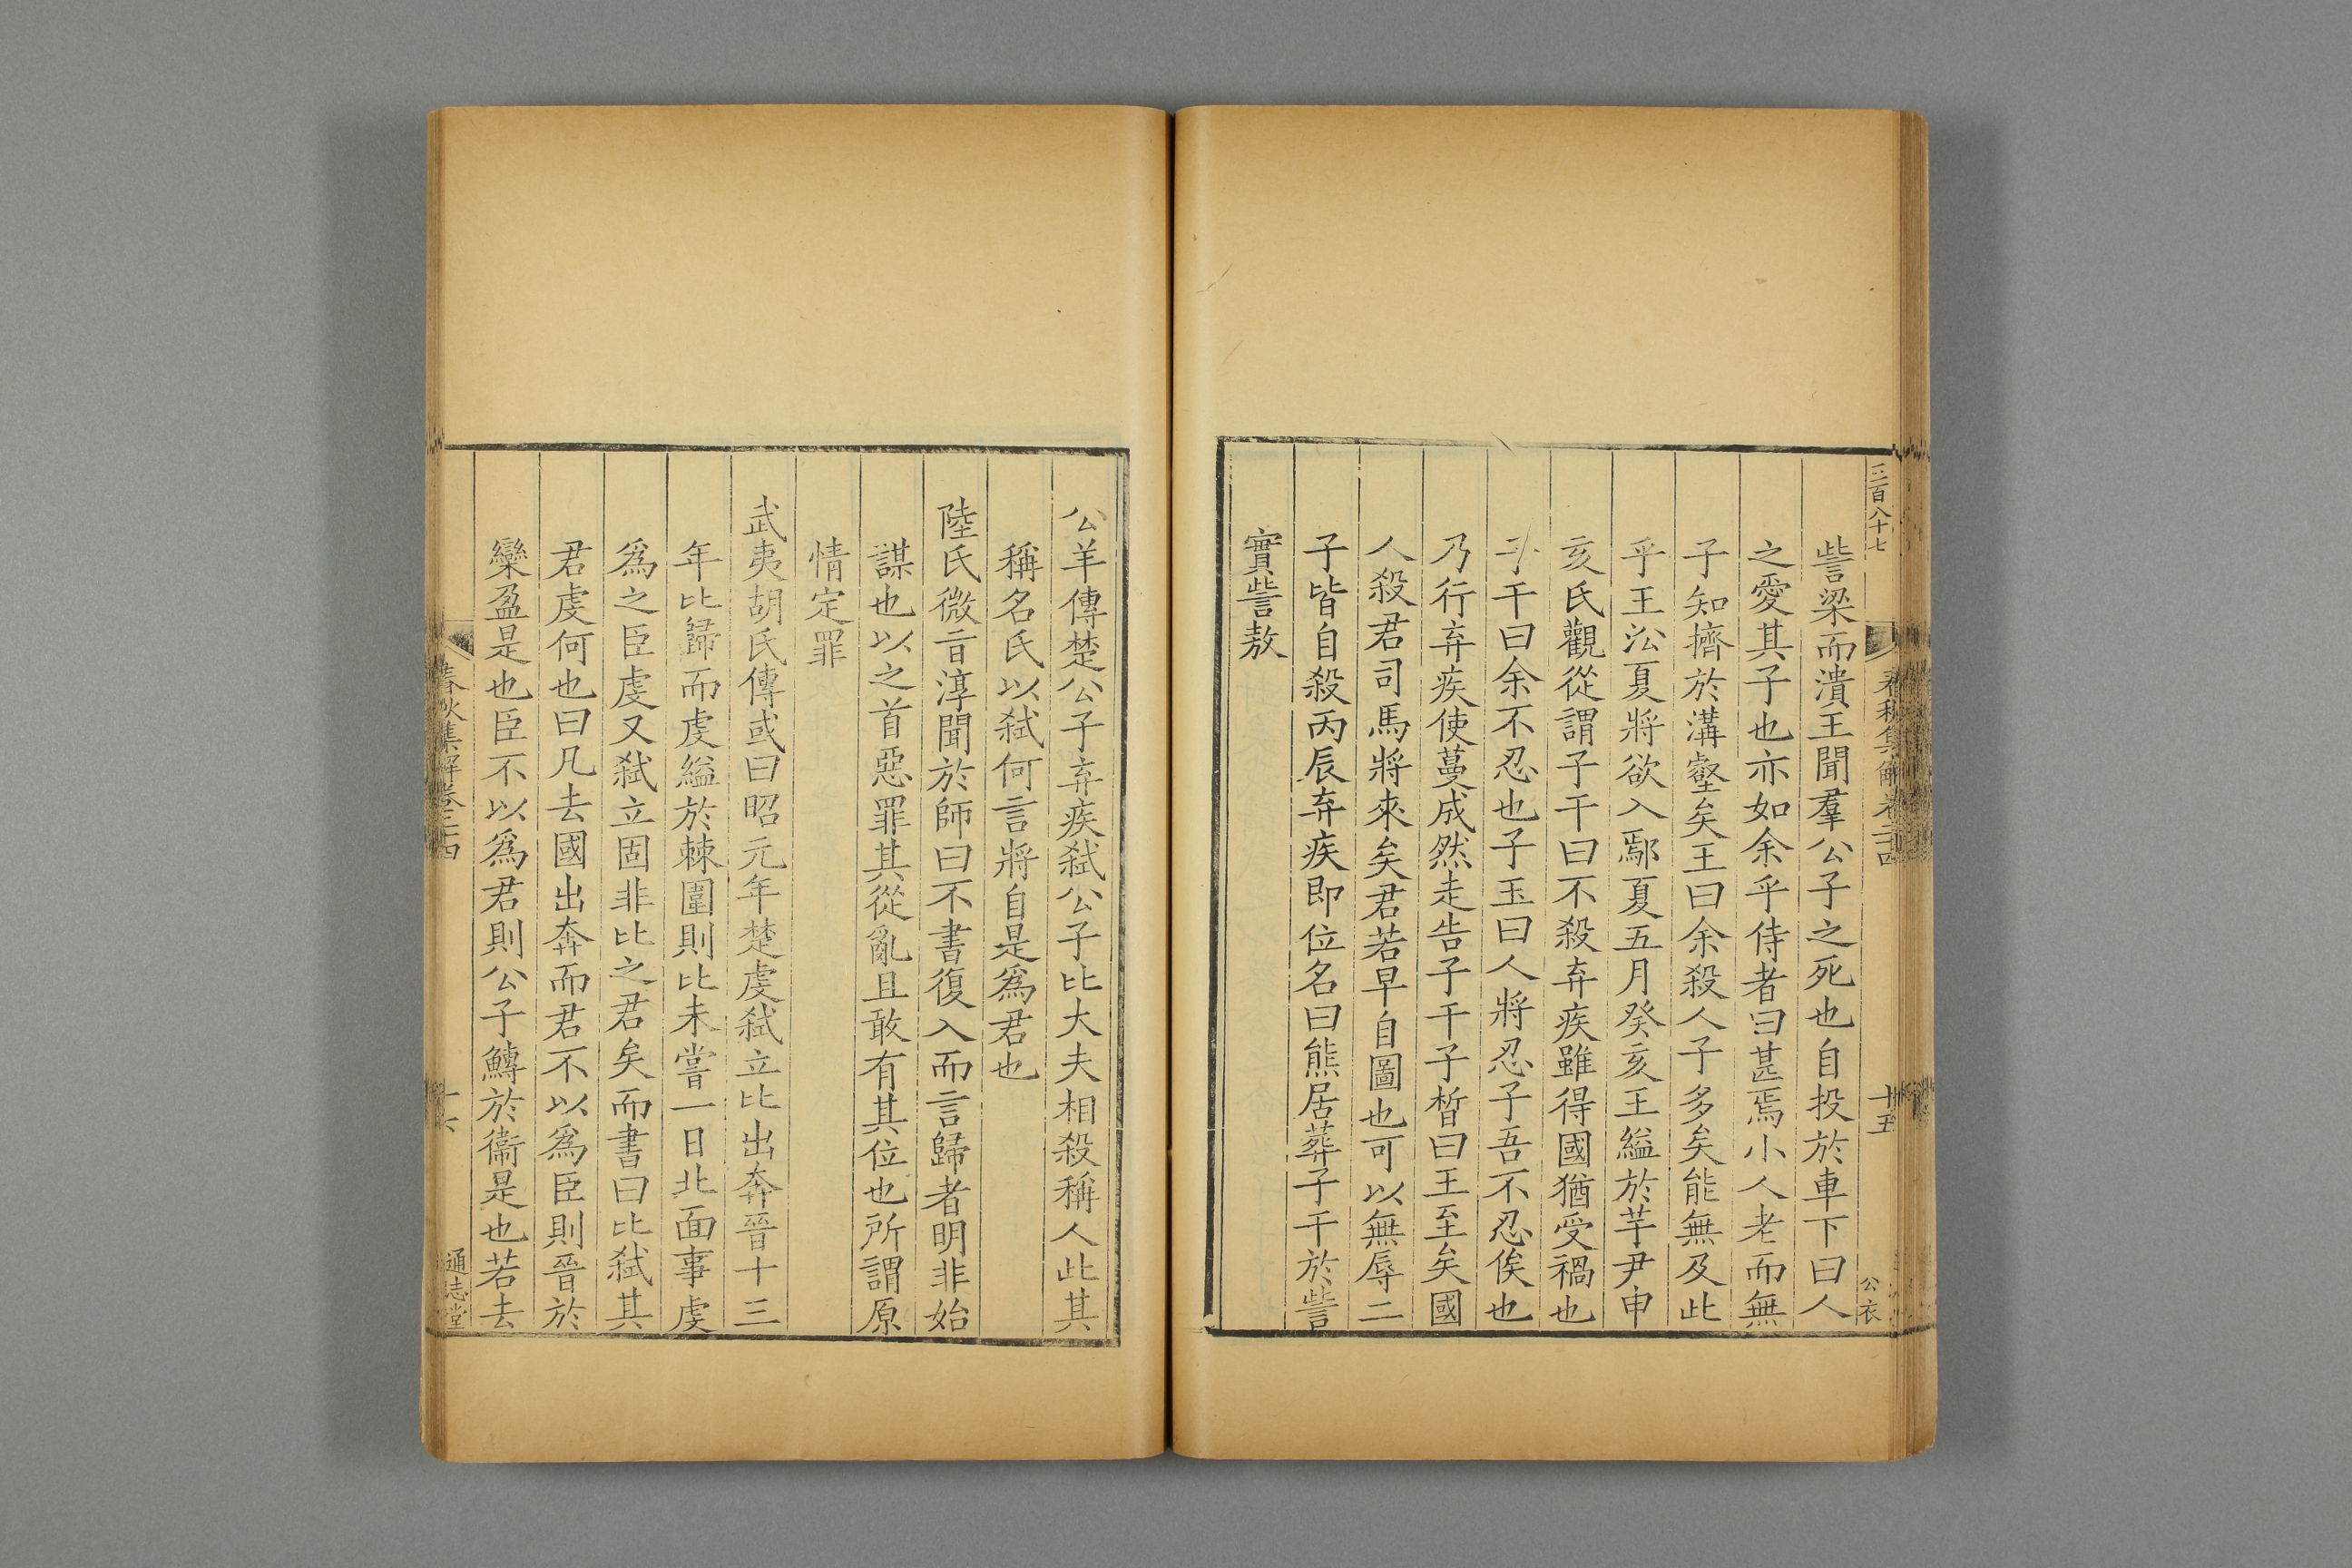 三百八十七
春秋集解卷二十四
十五
公衣
訾梁而潰王聞羣公子之死也自投於車下曰人
之愛其子也亦如余乎侍者曰甚焉小人老而無
子知擠於溝壑矣王曰余殺人子多矣能無及此
乎王㳂夏將欲入鄢夏五月癸亥王縊於芋尹申
亥氏觀從謂子干曰不殺弃疾雖得國猶受禍也
子干曰余不忍也子玉曰人將忍子吾不忍俟也
乃行弃疾使蔓成然走告子干子晳曰王至矣國
人殺君司馬將來矣君若早自圖也可以無辱二
子皆自殺丙辰弃疾即位名曰熊居葬子干於訾
實訾敖
公羊傳楚公子弃疾弑公子比大夫相殺稱人此其
稱名氏以弑何言將自是爲君也
陸氏微㫖淳聞於師曰不書復入而言歸者明非始
謀也以之首惡罪其從亂且敢有其位也所謂原
情定罪
武夷胡氏傳或曰昭元年楚虔弑立比出奔晉十三
年比歸而虔縊於棘圍則比未嘗一日北面事虔
爲之臣虔又弑立固非比之君矣而書曰比弑其
君虔何也曰凡去國出奔而君不以爲臣則晉於
欒盈是也臣不以爲君則公子鱄於衞是也若去
春秋集解卷二十四
十六
通志堂